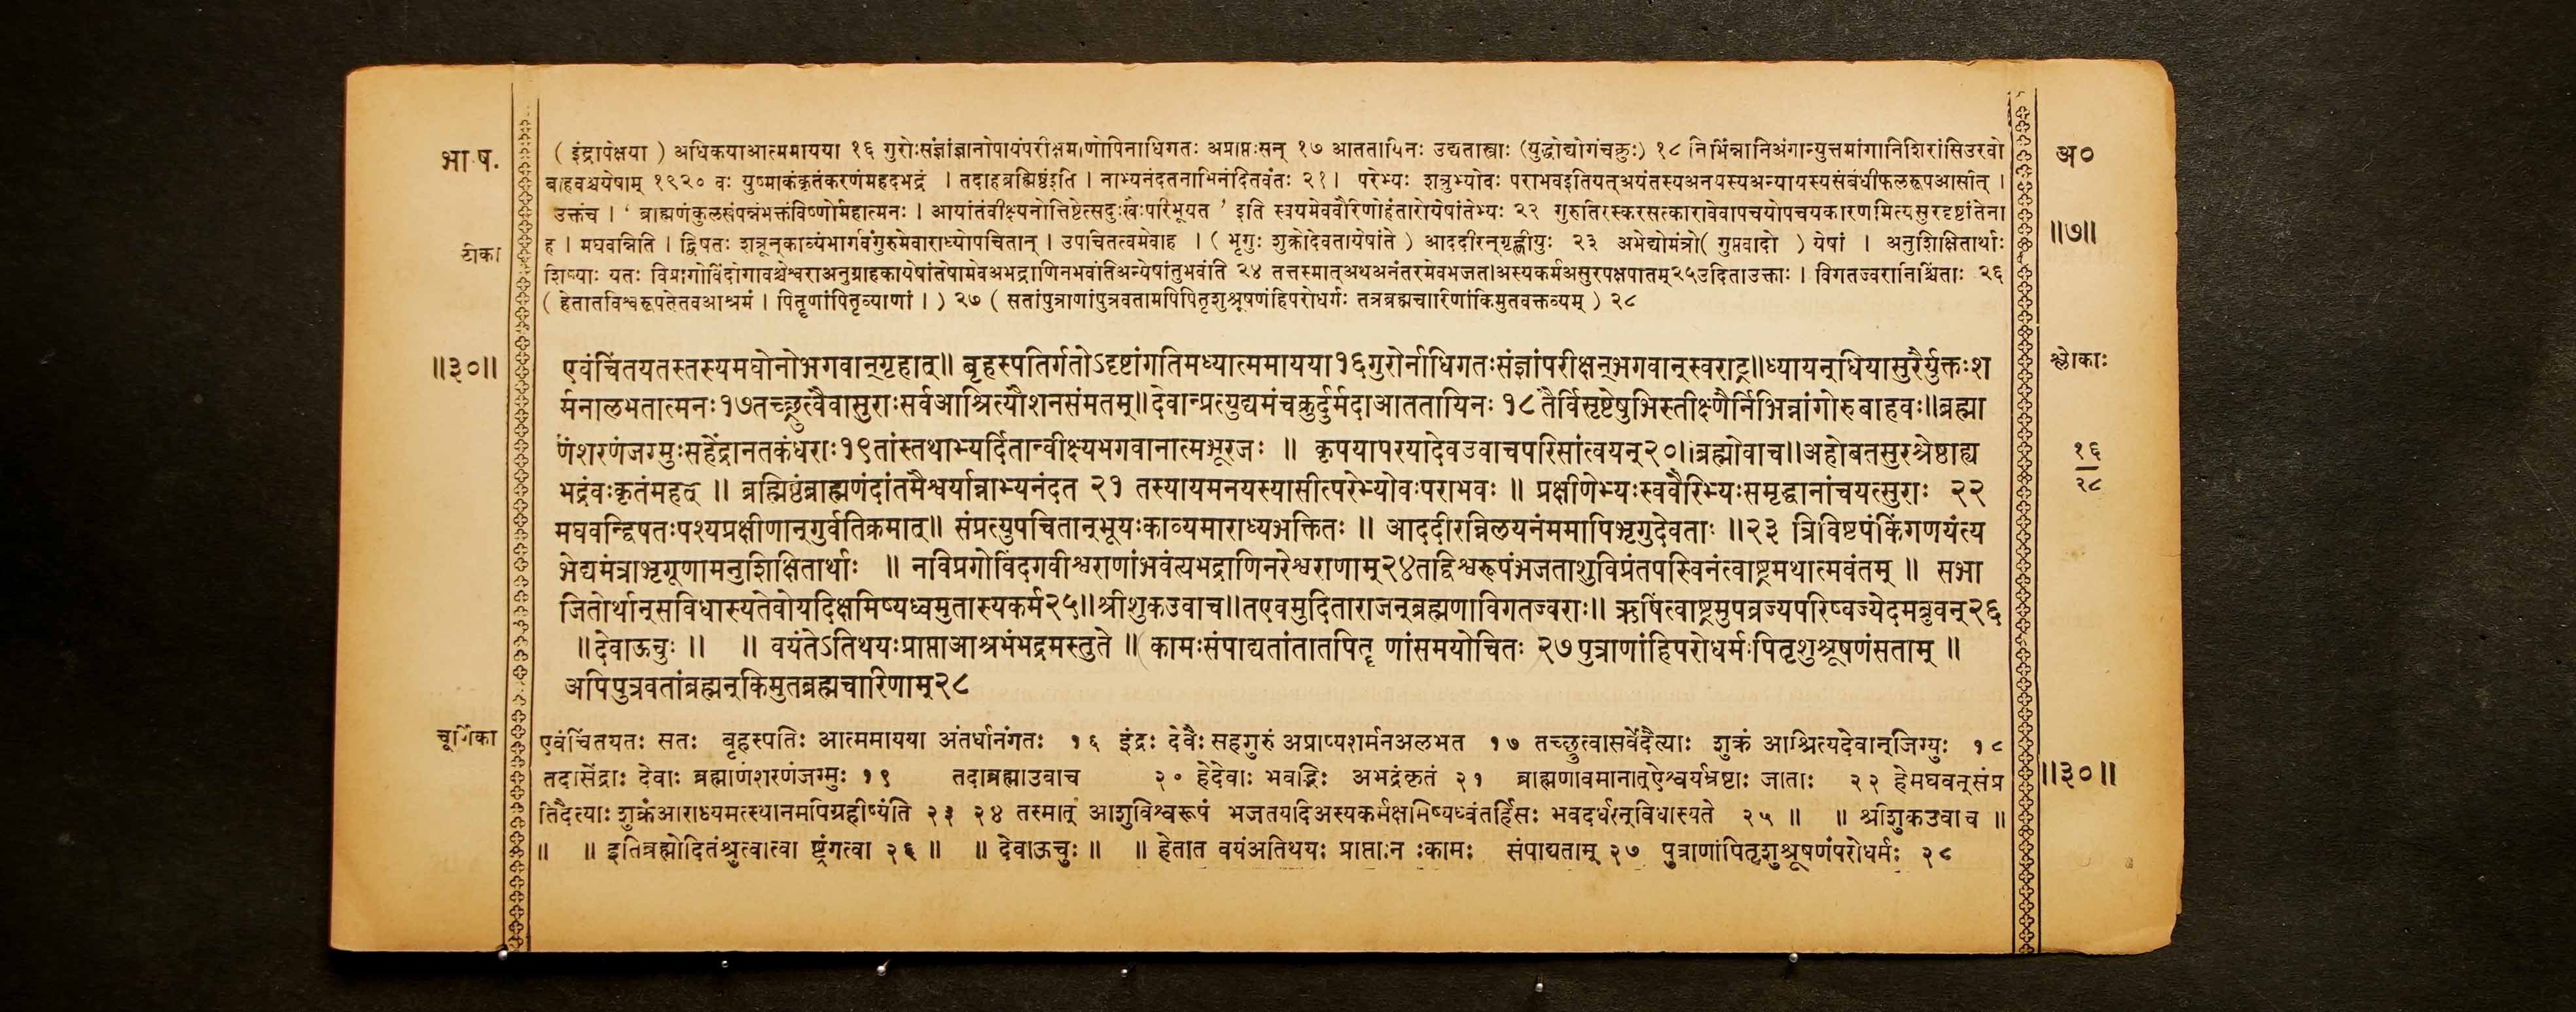 भा. ष.
( इंद्रापेक्षया ) अधिकयाआत्ममायया १६ गुरोःसंज्ञांज्ञानोपायंपरीक्षमाणोपिनाधिगतः अप्राप्तःसन् १७ आततायिनः उद्यतास्त्राः (युद्धोद्योगंचक्रुः) १८ निर्भिन्नानिअंगान्युत्तमांगानिशिरांसिउरवो
अ०
बाहवश्चयेषाम् १९२० वः युष्माकंकृतंकरणंमहदभद्रं । तदाहब्रह्मिष्ठंइति । नाभ्यनंदतनाभिनंदितवंतः २१। परेभ्यः शत्रुभ्योवः पराभवइतियत्अयंतस्यअनयस्यअन्यायस्यसंबंधीफलरूपआसीत् ।
उक्तंच । ' ब्राह्मणंकुलसंपन्नंभक्तंविष्णोर्महात्मनः । आयांतंवीक्ष्यनोत्तिष्ठेत्सदुःखैःपरिभूयत ' इति स्वयमेववैरिणोहंतारोयेषांतेभ्यः २२ गुरुतिरस्करसत्कारावेवापचयोपचयकारणमित्यसुरदृष्टांतेना
॥७॥
टीका
ह । मघवन्निति । द्विषतः शत्रून्काव्यंभार्गवंगुरुमेवाराध्योपचितान् । उपचितत्वमेवाह । ( भृगुः शुक्रोदेवतायेषांते ) आददीरन्गृह्णीयुः २३ अभेद्योमंत्रो( गुप्तवादो ) येषां । अनुशिक्षितार्थाः
शिष्याः यतः विप्रागोविंदोगावश्चेश्वराअनुग्राहकायेषांतेषामेवअभद्राणिनभवंतिअन्येषांतुभवंति २४ तत्तस्मात्अथअनंतरमेवभजत।अस्यकर्मअसुरपक्षपातम्२५उदिताउक्ताः । विगतज्वरानिश्चिंताः २६
( हेतातविश्वरूपतेतवआश्रमं । पितॄणांपितृव्याणां । ) २७ ( सतांपुत्राणांपुत्रवतामपिपितृशुश्रूषणंहिपरोधर्मः तत्रब्रह्मचारिणांकिमुतवक्तव्यम् ) २८
॥३०॥
एवंचिंतयतस्तस्यमघोनोभगवान्गृहात्॥ बृहस्पतिर्गतोऽदृष्टांगतिमध्यात्ममायया१६गुरोर्नाधिगतःसंज्ञांपरीक्षन्भगवान्स्वराट्॥ध्यायन्धियासुरैर्युक्तःश
श्लोकाः
र्मनालभतात्मनः१७तच्छ्रुत्वैवासुराःसर्वआश्रित्यौशनसंमतम्॥देवान्प्रत्युद्यमंचक्रुर्दुर्मदाआततायिनः १८तैर्विसृष्टेषुभिस्तीक्ष्णैर्निभिन्नांगोरुबाहवः॥ब्रह्मा
णंशरणंजग्मुःसहेंद्रानतकंधराः१९तांस्तथाभ्यर्दितान्वीक्ष्यभगवानात्मभूरजः ॥ कृपयापरयादेवउवाचपरिसांत्वयन्२०॥ब्रह्मोवाच॥अहोबतसुरश्रेष्ठाह्य
१६
२८
भद्रंवःकृतंमहत् ॥ ब्रह्मिष्ठंब्राह्मणंदांतमैश्वर्यान्नाभ्यनंदत २१ तस्यायमनयस्यासीत्परेभ्योवःपराभवः ॥ प्रक्षीणेभ्यःस्ववैरिभ्यःसमृद्धानांचयत्सुराः २२
मघवन्द्विषतःपश्यप्रक्षीणान्गुर्वतिक्रमात्॥ संप्रत्युपचितान्भूयःकाव्यमाराध्यभक्तितः ॥ आददीरन्निलयनंममापिभृगुदेवताः ॥२३ त्रिविष्टपंकिंगणयंत्य
भेद्यमंत्राभृगूणामनुशिक्षितार्थाः ॥ नविप्रगोविंदगवीश्वराणांभवंत्यभद्राणिनरेश्वराणाम्२४तद्विश्वरूपंभजताशुविप्रंतपस्विनंत्वाष्ट्रमथात्मवंतम् ॥ सभा
जितोर्थान्सविधास्यतेवोयदिक्षमिष्यध्वमुतास्यकर्म२५॥श्रीशुकउवाच॥तएवमुदिताराजन्ब्रह्मणाविगतज्वराः॥ ऋषिंत्वाष्ट्रमुपव्रज्यपरिष्वज्येदमब्रुवन्२६
॥देवाऊचुः ॥ ॥ वयंतेऽतिथयःप्राप्ताआश्रमंभद्रमस्तुते ॥ कामःसंपाद्यतांतातपितॄ णांसमयोचितः २७पुत्राणांहिपरोधर्मःपितृशुश्रूषणंसताम् ॥
अपिपुत्रवतांब्रह्मन्किमुतब्रह्मचारिणाम्२८
चूर्णिका
एवंचिंतयतः सतः बृहस्पतिः आत्ममायया अंतर्धानंगतः १६ इंद्रः देवैः सहगुरुं अप्राप्यशर्मनअलभत १७ तच्छ्रुत्वासर्वेदैत्याः शुक्रं आश्रित्यदेवान्जिग्युः १८
तदासेंद्राः देवाः ब्रह्माणंशरणंजग्मुः १९ तदाब्रह्माउवाच २० हेदेवाः भवद्भिः अभद्रंकृतं २१ ब्राह्मणावमानात्ऐश्वर्यभ्रष्टाः जाताः २२ हेमघवन्संप्र
॥३०॥
तिदैत्याः शुक्रंआराध्यमत्स्थानमपिग्रहीष्यंति २३ २४ तस्मात् आशुविश्वरूपं भजतयदिअस्यकर्मक्षमिष्यध्वंतर्हिसः भवदर्थान्विधास्यते २५ ॥ ॥ श्रीशुकउवाच ॥
॥ ॥ इतिब्रह्मोदितंश्रुत्वात्वा ष्ट्रंगत्वा २६ ॥ ॥ देवाऊचुः ॥ ॥ हेतात वयंअतिथयः प्राप्ताःन ःकामः संपाद्यताम् २७ पुत्राणांपितृशुश्रूषणंपरोधर्मः २८